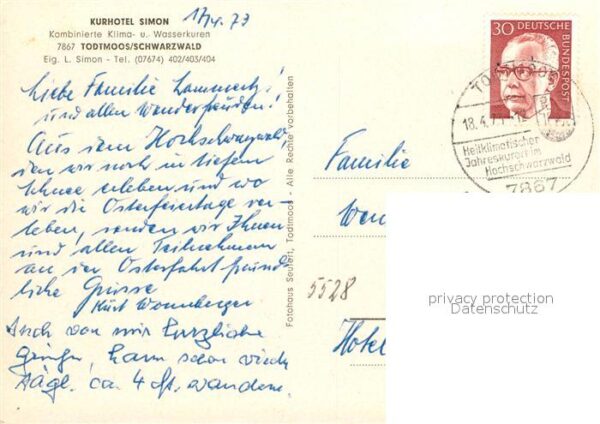 KURHOTEL SIMON
Kombinierte Klima- u. Wasserkuren
7867 TODTMOOS/SCHWARZWALD
Eig. L. Simon - Tel. (07674) 402/403/404
17/4. 73
Liebe Familie
und allen Wanderfreunden!
Aus dem Hochschwarzwald,
den wir noch in tiefem
Schnee erleben und wo
wir die Osterfeiertage ver-
leben, senden wir Ihnen
und allen Teilnehmern
an der Osterfahrt freund-
liche Grüsse
Kurt
Auch von mir herzliche
Grüße, kann schon wieder
tägl. ca. 4 St. wandern.
Fotohaus Seufert, Todtmoos - Alle Rechte vorbehalten
30 DEUTSCHE BUNDESPOST
TODTMOOS
18.4.7
Heilklimatischer
Jahreskurort im
Hochschwarzwald
7867
Familie
5528
Hotel
privacy protection
Datenschutz